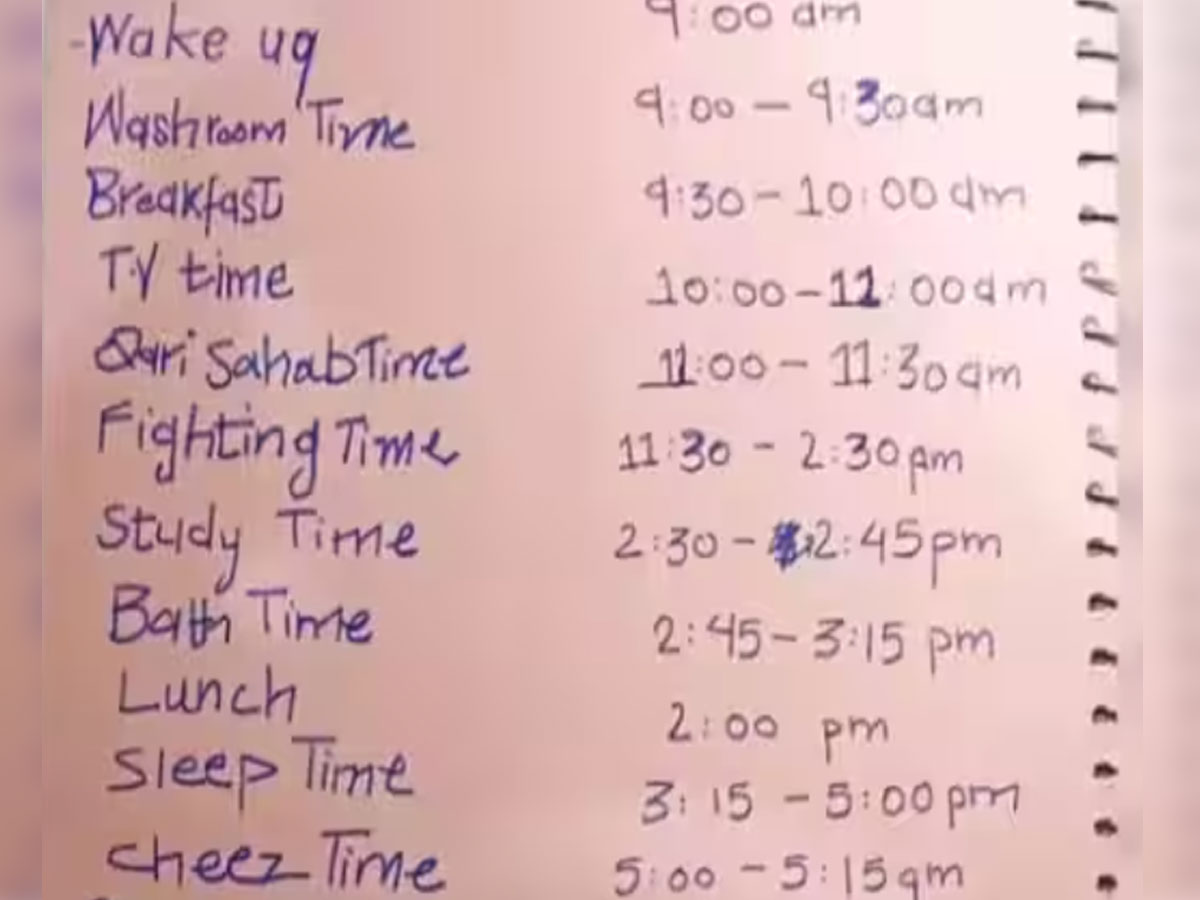 -Wake up 9:00 am
Washroom Time 9:00 - 9:30am
Breakfast 9:30 - 10:00 am
T.V time 10:00 - 11:00am
Qari Sahab Time 11:00 - 11:30am
Fighting Time 11:30 - 2:30pm
Study Time 2:30 - 2:45pm
Bath Time 2:45 - 3:15 pm
Lunch 2:00 pm
Sleep Time 3:15 - 5:00pm
Cheez Time 5:00 - 5:15am